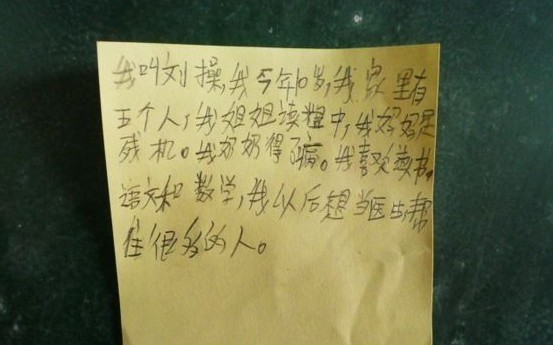 我叫刘操,我今年10岁,我家里有
五个人,我姐姐读粗中,我妈妈是
残机。我奶奶得了病。我喜欢读书。
语文和数学,我以后想当医生,帮
住很多的人。